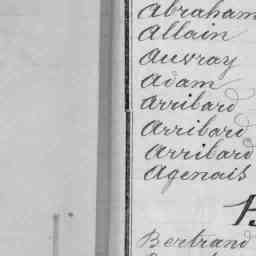 Abraham
Allain
Auvray
Adam
Arribard
Arribard
Arribard
Agenais
B
Bertrand